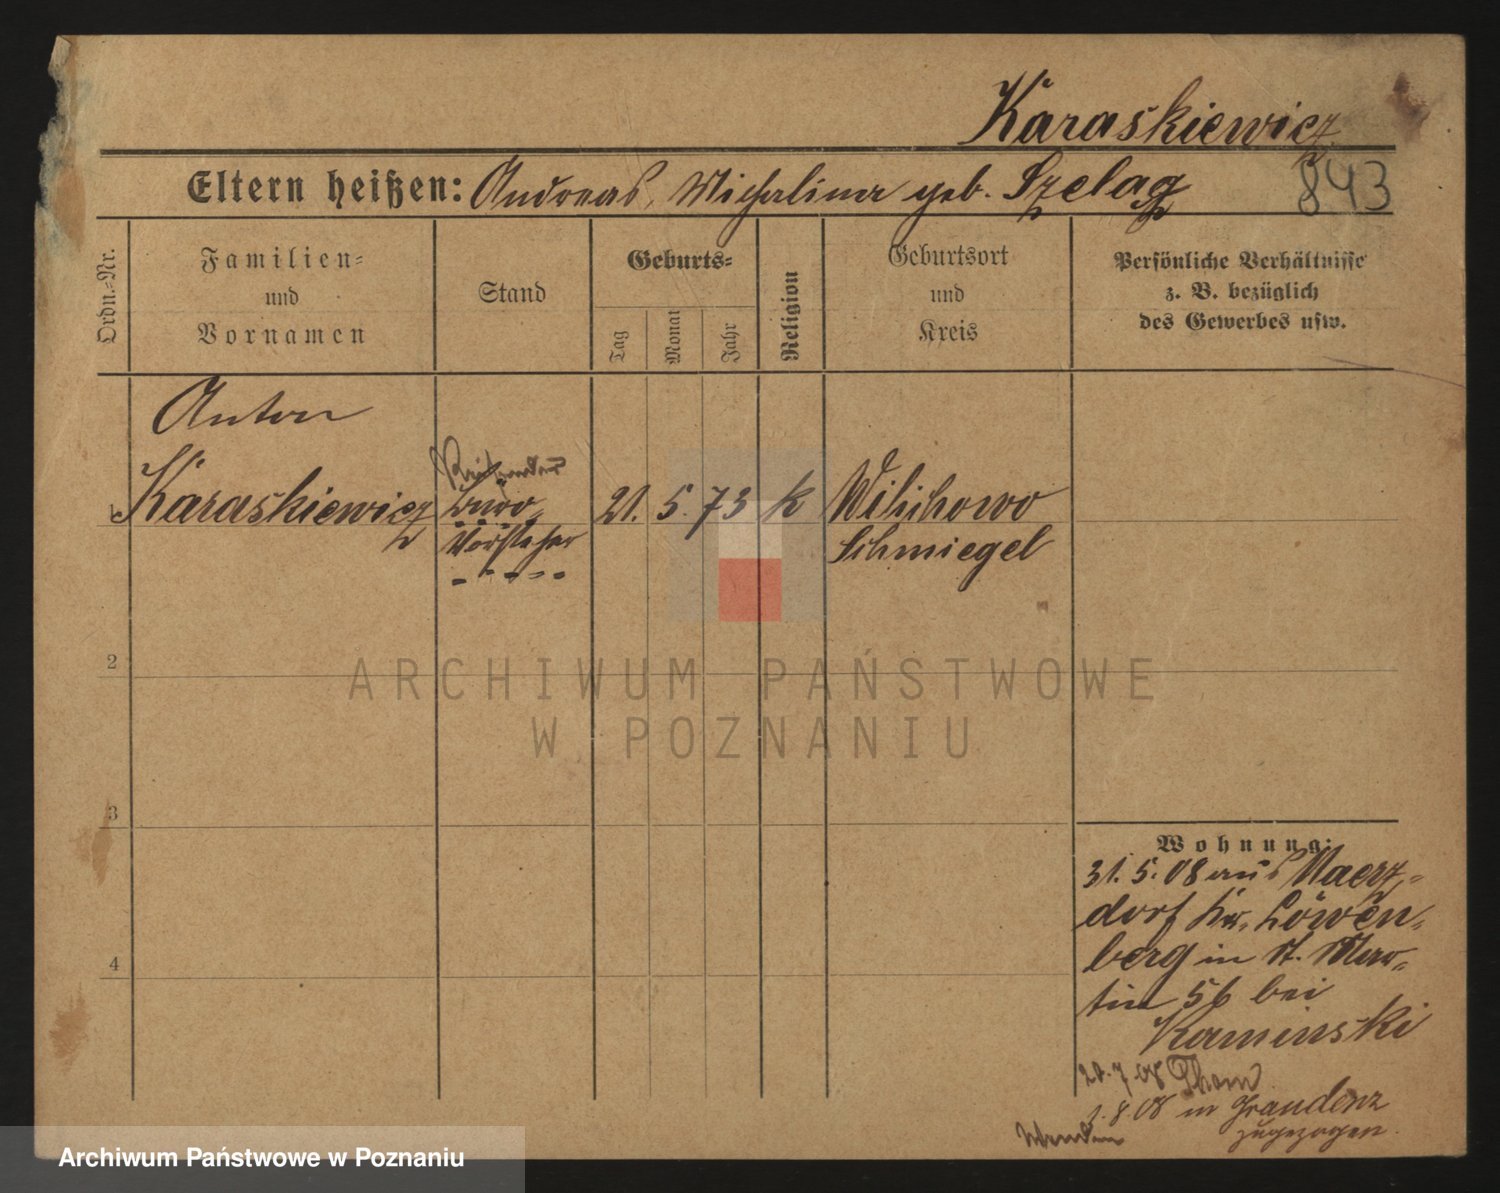 Karaskiewicz
Eltern heißen: Andreas, Michalina geb. Szelag
843
Ordn.-Nr.
Familien-
und
Vornamen
Stand
Geburts-
Tag
Monat
Jahr
Religion
Geburtsort
und
Kreis
Persönliche Verhältnisse
z. B. bezüglich
des Gewerbes usw.
Anton
1 Karaskiewicz
Reisender
Büro-
Vorsteher
21. 5. 73 k
Wilichowo
Schmiegel
2
3
4
Wohnung:
31. 5. 08 aus Maerz-
dorf Kr. Löwen-
berg in St. Mar-
tin 56 bei
Kaminski
20. 7. 08 Thorn
1. 8. 08 in Graudenz
zugezogen.
Wenden
ARCHIWUM PAŃSTWOWE
W POZNANIU
Archiwum Państwowe w Poznaniu